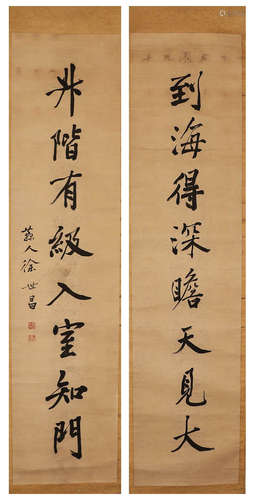 到海得深瞻天見大
升階有級入室知門
弢人徐世昌